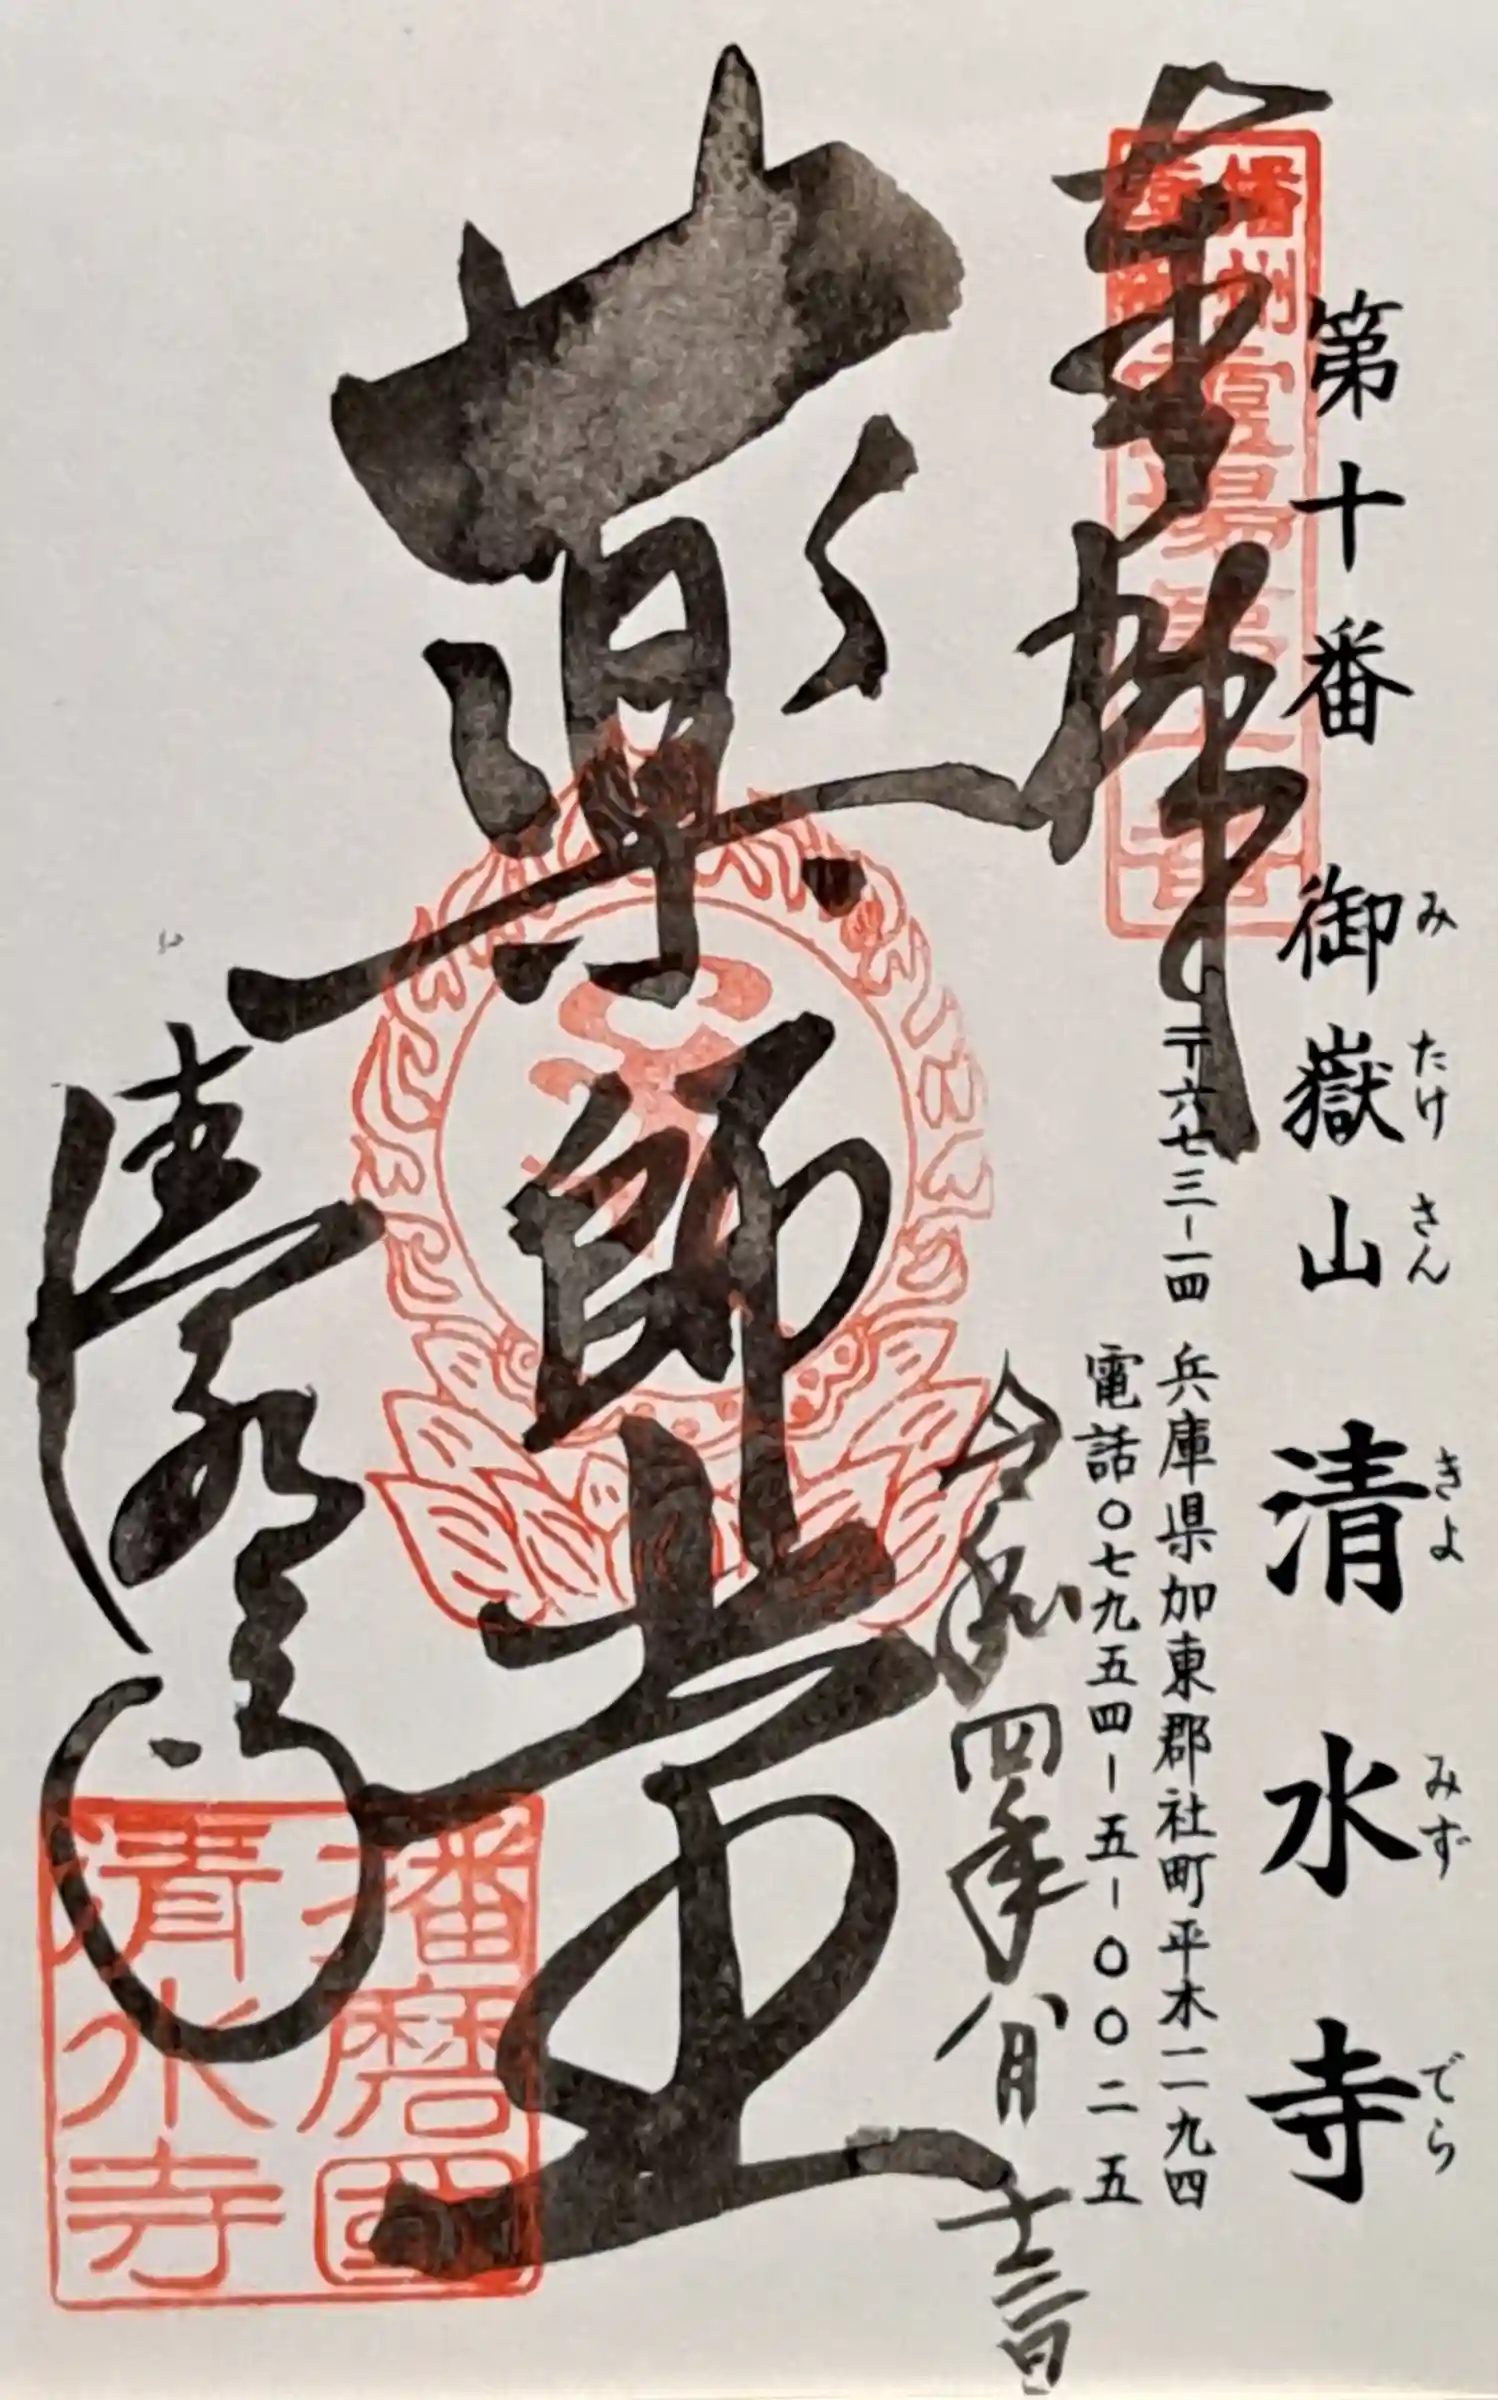 第十番 御嶽山 清水寺
みたけさん きよみずでら
奉拝
〒六七三-一四 兵庫県加東郡社町平木一一九四
電話〇七九五四-五-〇〇二五
令和四年八月十三日
薬師堂
清水寺
播磨国
清水寺